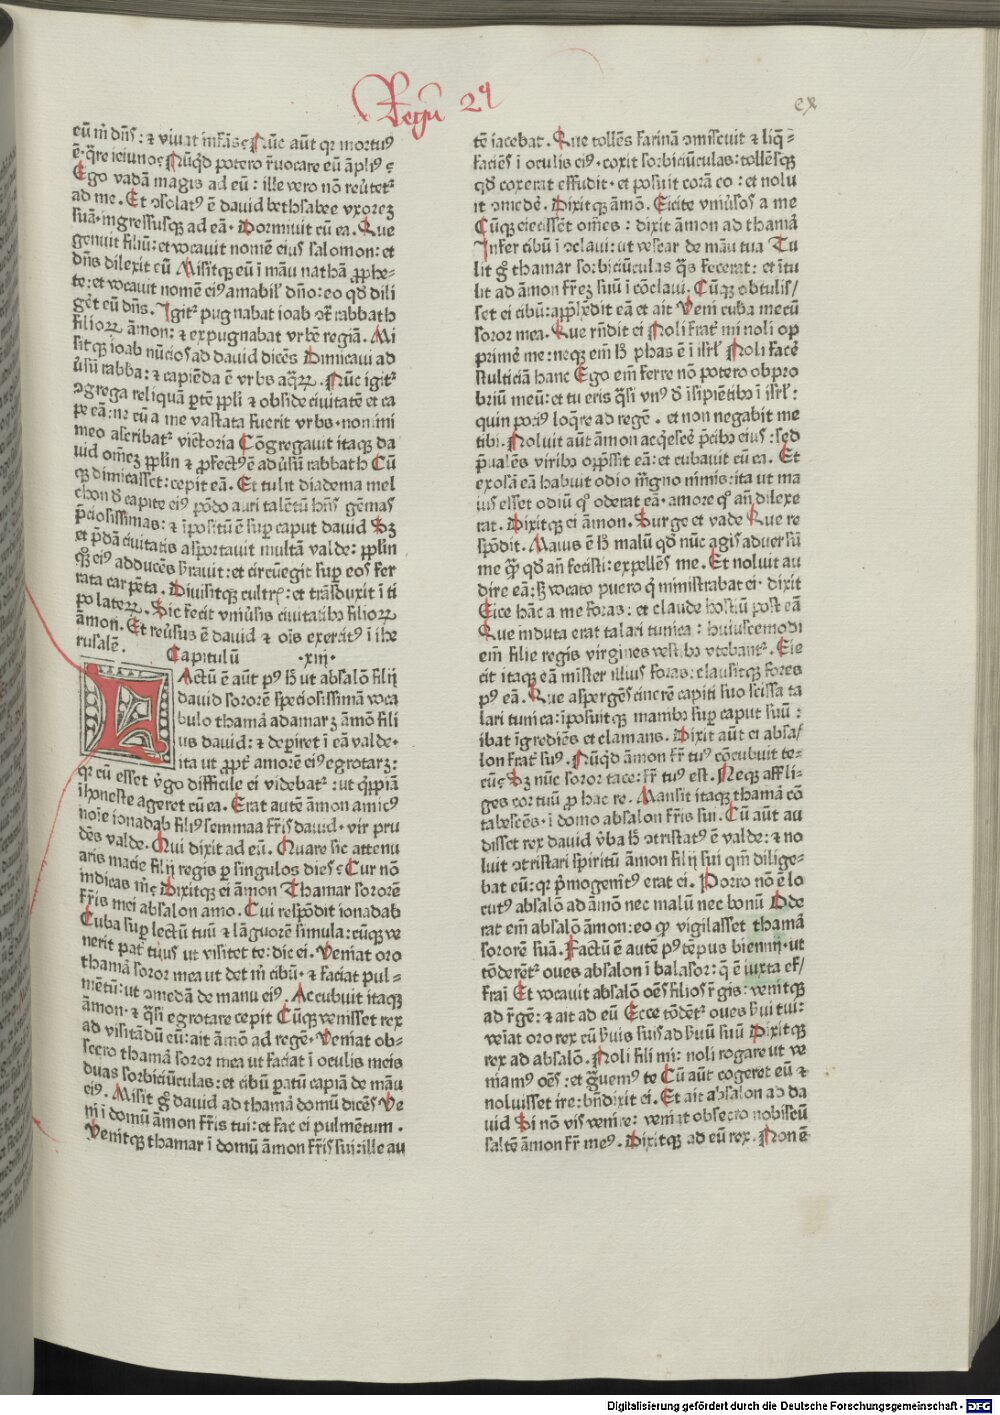 Regũ 2ꝯ
cx
eũ m̃ dñs: ⁊ viuat infãs? Nũc aũt qꝛ mortuꝰ
ẽ· q̃re ieiuno? Nũqͥd potero r̃uocare eũ ãpliꝰ?
Ego vadã magis ad eũ: ille vero nõ reũtetᷣ
ad me. Et ɔsolatꝰ ẽ dauid bethsabee vxorẽ
suã· ingressusqꝫ ad eã· Dormiuit cũ ea. Que
genuit filiũ: et vocauit nomẽ eius salomon: et
dñs dilexit eũ Misitqꝫ eũ ĩ mãu nathã ꝓphe-
te: et vocauit nomẽ eiꝰ amabil' dño: eo qd̃ dili
gẽt eũ dñs. Igitᷣ pugnabat ioab ɔt̃ rabbath
filioꝝ ãmon: ⁊ expugnabat vrbẽ regiã. Mi
sitqꝫ ioab nũcios ad dauid dicẽs Dimicaui ad
ũsũ rabba: ⁊ capiẽda ẽ vrbs aq̃ꝝ. Nũc igitᷣ
ɔgrega reliquã ꝑtẽ ppl'i ⁊ obside ciuitatẽ et ca
pe eã: ne cũ a me vastata fuerit vrbs· nomini
meo ascribatᷣ victoria Cõgregauit itaqꝫ da
uid om̃eꝫ ppl'm ⁊ ꝓfectꝰ ẽ aduersũ rabbath Cũ
qꝫ dimicasset: cepit eã. Et tulit diadema mel
chon d̃ capite eiꝰ põdo auri talẽtũ hñs gẽmas
p̃ciosissimas: ⁊ ĩpositũ ẽ suꝑ caput dauid Sꝫ
et p̃dã ciuitatis asportauit multã valde: ppl'm
qꝫ eiꝰ adducẽs ẜrauit: et circũegit suꝑ eos fer
rata carpẽta. Diuisitqꝫ cultrꝭ: et trãsduxit ĩ ti
po lateꝝ. Sic fecit vniũsis ciuitatibꝰ filioꝝ
ãmon. Et reũsus ẽ dauid ⁊ oĩs exercitꝰ ĩ ihe
rusalẽ.
Capitulũ ·xiii·
FActũ ẽ aũt pꝰ h̃ ut absalõ filij
dauid sororẽ speciosissimã voca
bulo thamã adamarꝫ ãmõ fili
us dauid: ⁊ deꝑiret ĩ eã valde·
ita ut ꝓpt̃ amorẽ eiꝰ egrotarꝫ:
qꝛ cũ esset ṽgo difficile ei videbatᷣ: ut q̃ppiã
ĩhoneste ageret cũ ea. Erat autẽ ãmon amicꝰ
noĩe ionadab filiꝰ semmaa fr̃is dauid· vir pru
dẽs valde. Qui dixit ad eũ. Quare sic attenu
aris macie filij regis ꝑ singulos dies? Cur nõ
indicas m̃? Dixitqꝫ ei ãmon Thamar sororẽ
fr̃is mei absalon amo. Cui respõdit ionadab
Cuba suꝑ lectũ tuũ ⁊ lãguorẽ simula: cũqꝫ ve
nerit pat̃ tuus ut visitet te: dic ei. Veniat oro
thamã soror mea ut det m̃ cibũ· ⁊ faciat pul-
mẽtũ: ut ɔmedã de manu eiꝰ. Accubuit itaqꝫ
ãmon· ⁊ q̃si egrotare cepit Cũqꝫ venisset rex
ad visitãdũ eũ: ait ãmõ ad regẽ· Veniat ob-
secro thamã soror mea ut faciat ĩ oculis meis
duas sorbiciũculas: et cibũ ꝑatũ capiã de mãu
eiꝰ. Misit g̃ dauid ad thamã domũ dicẽs Ve
ni ĩ domũ ãmon fr̃is tui: et fac ei pulmẽtum·
Venitqꝫ thamar ĩ domũ ãmon fr̃is sui: ille au
tẽ iacebat. Que tollẽs farinã ɔmiscuit ⁊ liq̃-
faciẽs ĩ oculis eiꝰ· coxit sorbiciũculas: tollẽsqꝫ
qd̃ coxerat effudit· et posuit corã eo: et nolu
it ɔmedẽ. Dixitqꝫ ãmõ. Eicite vniũsos a me
Cũqꝫ eiecissẽt om̃es: dixit ãmon ad thamã
Infer cibũ ĩ ɔclaui: ut vescar de mãu tua Tu
lit g̃ thamar sorbiciũculas q̃s fecerat: et ĩtu
lit ad ãmon fr̃eꝫ suũ ĩ cõclaui. Cũqꝫ obtulis/
set ei cibũ: app̃hẽdit eã et ait Veni cuba mecũ
soror mea. Que rñdit ei Noli frat̃ mi noli op
primẽ me: neqꝫ em̃ h̃ phas ẽ ĩ isrl' Noli facẽ
stulticiã hanc Ego em̃ ferre nõ potero obpro
briũ meũ: et tu eris q̃si vnꝰ d̃ ĩsipiẽtibꝰ ĩ isrl':
quin pociꝰ loq̃re ad regẽ· et non negabit me
tibi. Noluit aũt ãmon acq̃escẽ p̃cibꝰ eius: sed
p̃ualẽs viribꝰ opp̃ssit eã: et cubauit cũ ea. Et
exosã eã habuit odio m̃gno nimis: ita ut ma
ius esset odiũ qͦ oderat eã· amore qͦ añ dilexe
rat. Dixitqꝫ ei ãmon. Surge et vade Que re
spõdit. Maius ẽ h̃ malũ qd̃ nũc agis aduersũ
me q̃ qd̃ añ fecisti: expellẽs me. Et noluit au
dire eã: sꝫ vocato puero qͥ ministrabat ei· dixit
Eice hãc a me foras: et claude hostiũ post eã
Que induta erat talari tunica: huiuscemodi
em̃ filie regis virgines vestibꝰ vtebantᷣ. Eie
cit itaqꝫ eã mister illius foras: clausitqꝫ fores
pꝰ eã. Que aspergẽs cinerẽ capiti suo scissa ta
lari tunica: ĩposuitqꝫ manibꝰ suꝑ caput suũ:
ibat ĩgrediẽs et clamans. Dixit aũt ei absa/
lon frat̃ suꝰ. Nũqͥd ãmon fr̃ tuꝰ cõcubuit te-
cũ? Sꝫ nũc soror tace: fr̃ tuꝰ est. Neqꝫ affli-
ges cor tuũ ꝓ hac re. Mansit itaqꝫ thamã cõ
tabescẽs· ĩ domo absalon fr̃is sui. Cũ aũt au
disset rex dauid ṽba h̃ ɔtristatꝰ ẽ valde: ⁊ no
luit ɔtristari spiritũ ãmon filij sui qm̃ dilige-
bat eũ: qꝛ p̃mogenitꝰ erat ei. Porro nõ ẽ lo
cutꝰ absalõ ad ãmõ nec malũ nec bonũ Ode
rat em̃ absalon ãmon: eo qꝙ vigilasset thamã
sororẽ suã. Factũ ẽ autẽ pꝰ tẽpus biennij· ut
tõderẽtᷣ oues absalon ĩ balasor: q̃ ẽ iuxta ef/
fraĩ Et vocauit absalõ oẽs filios r̃gis: venitqꝫ
ad r̃gẽ: ⁊ ait ad eũ Ecce tõdẽtᷣ oues ẜui tui:
veĩat oro rex cũ ẜuis suis ad ẜuũ suũ Dixitqꝫ
rex ad absalõ. Noli fili mi: noli rogare ut ve
niamꝰ oẽs: et g̃uemꝰ te Cũ aũt cogeret eũ ⁊
noluisset ire: bñdixit ei. Et ait absalon ad da
uid Si nõ vis venire: veniat obsecro nobiscũ
saltẽ ãmon fr̃ meꝰ. Dixitqꝫ ad eũ rex. Non ẽ
Digitalisierung gefördert durch die Deutsche Forschungsgemeinschaft - DFG